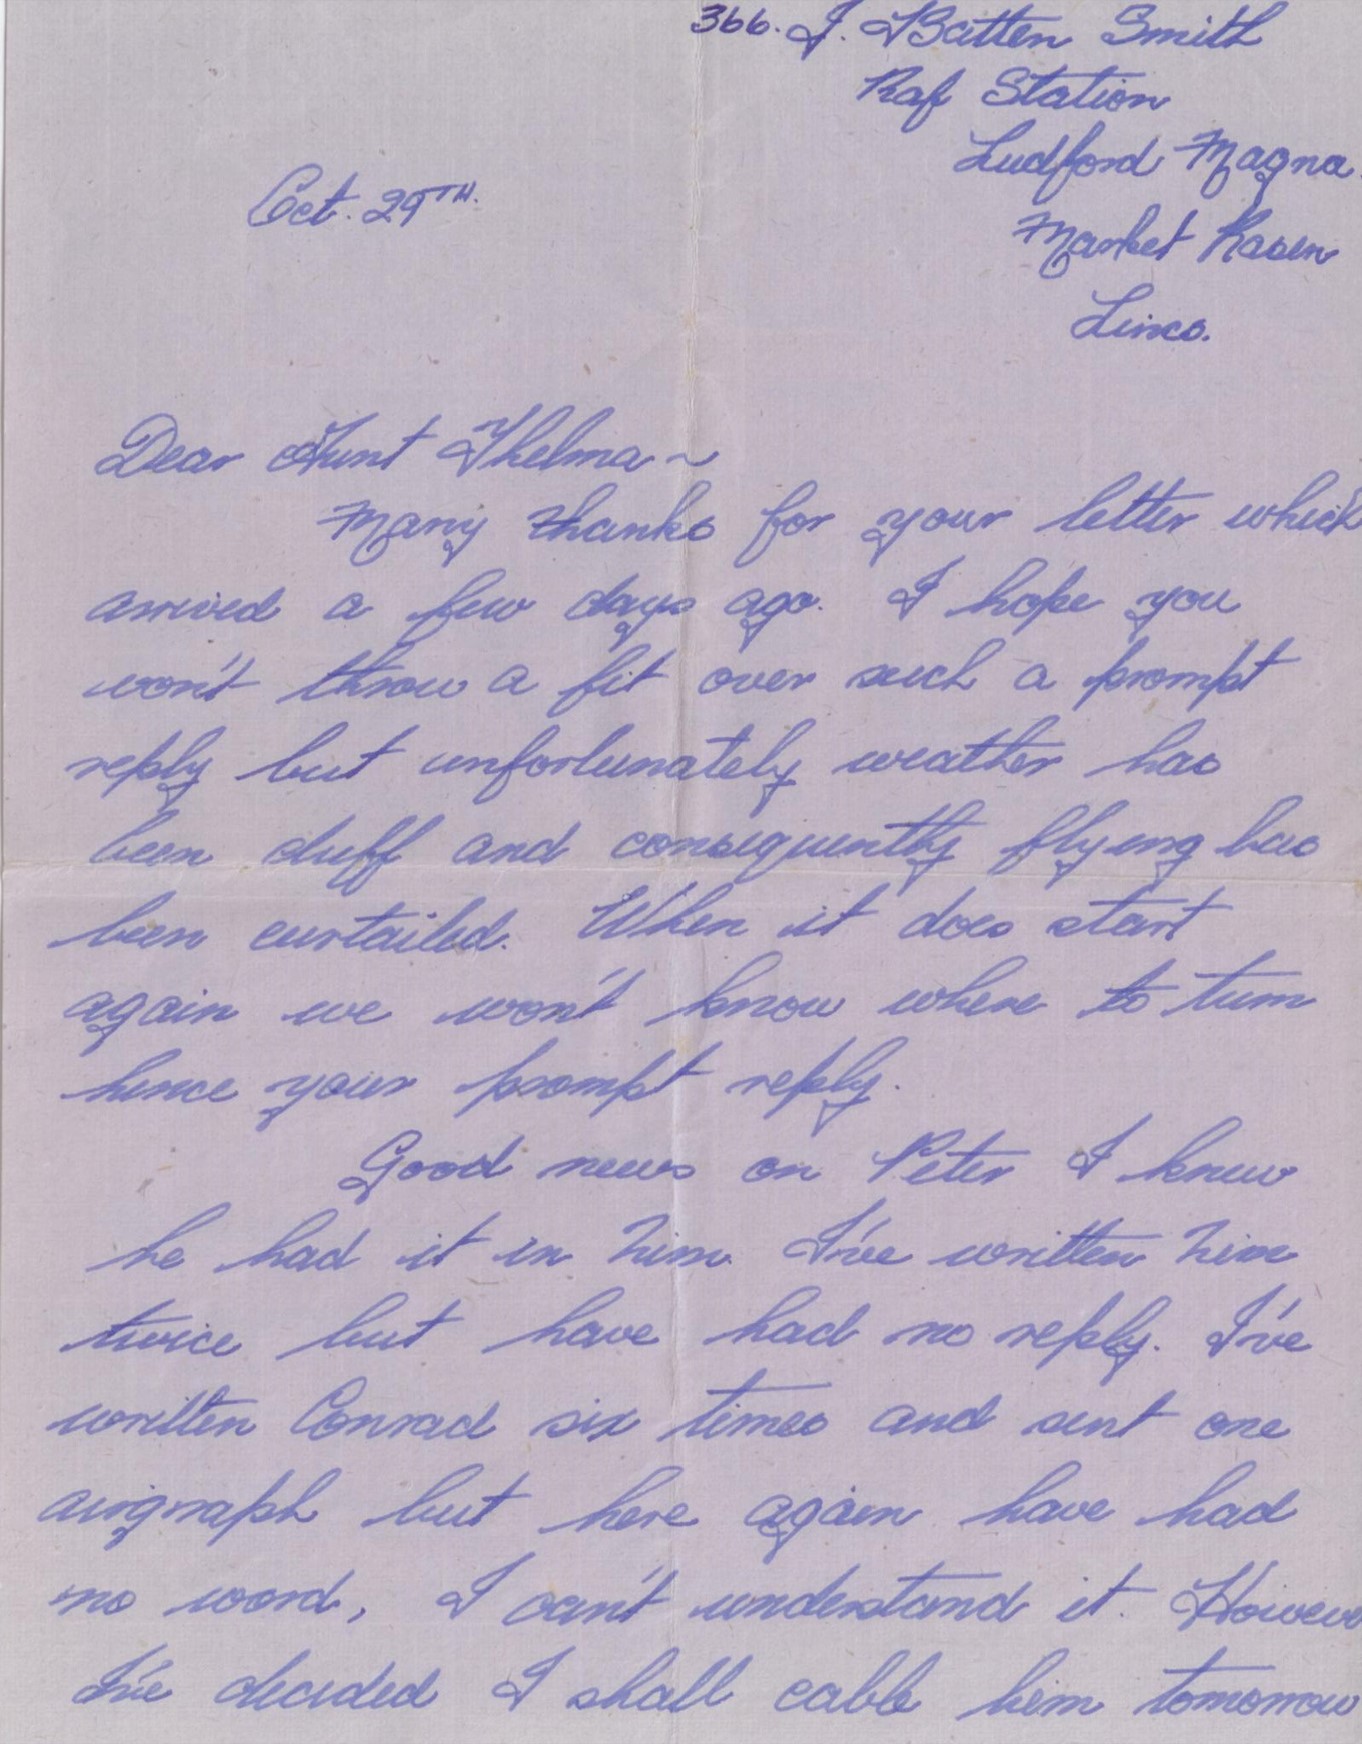 366. J. Batten Smith
Raf Station
Ludford Magna.
Market Rasen
Lincs.
Oct. 29TH.
Dear Aunt Thelma ~
Many thanks for your letter which
arrived a few days ago. I hope you
won't throw a fit over such a prompt
reply but unfortunately weather has
been duff and consequently flying has
been curtailed. When it does start
again we won't know where to turn
hence your prompt reply.
Good news on Peter I knew
he had it in him. I've written him
twice but have had no reply. I've
written Conrad six times and sent one
airgraph but here again have had
no word, I can't understand it. However
I've decided I shall cable him tomorrow